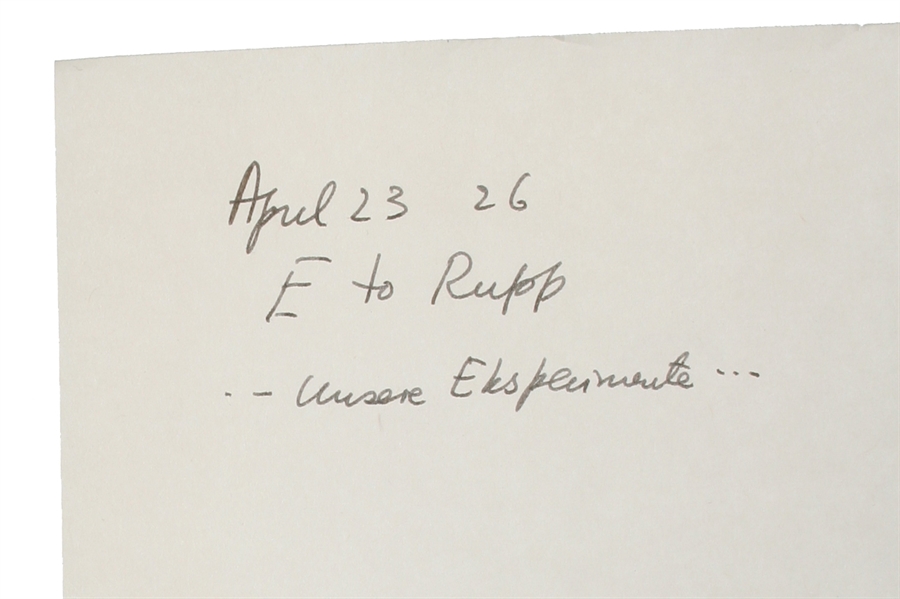 April 23 26
E to Rupp
.. - unsere Eksperimente ...